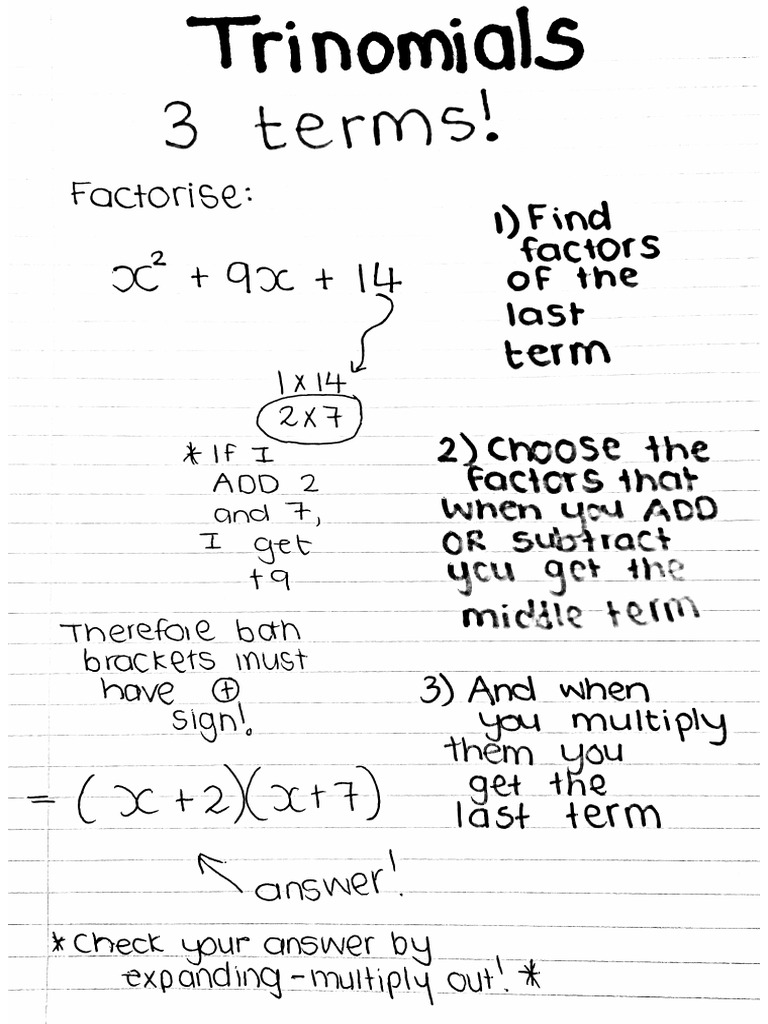 Trinomials
3 terms!
Factorise:
x² + 9x + 14
1 x 14
2 x 7
* If I
ADD 2
and 7,
I get
+9
Therefore both
brackets must
have ⊕
sign!
= (x + 2)(x + 7)
answer!
1) Find
factors
of the
last
term
2) Choose the
factors that
when you ADD
OR subtract
you get the
middle term
3) And when
you multiply
them you
get the
last term
* Check your answer by
expanding - multiply out! *